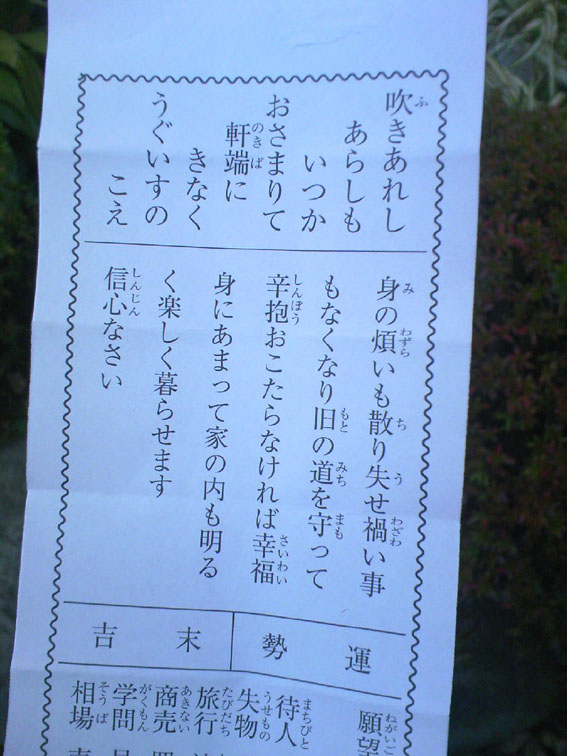 吹きあれし
あらしも
いつか
おさまりて
軒端に
きなく
うぐいすの
こえ
身の煩いも散り失せ禍い事
もなくなり旧の道を守って
辛抱おこたらなければ幸福
身にあまって家の内も明る
く楽しく暮らせます
信心なさい
運勢
末吉
願望
待人
失物
旅行
商売
学問
相場